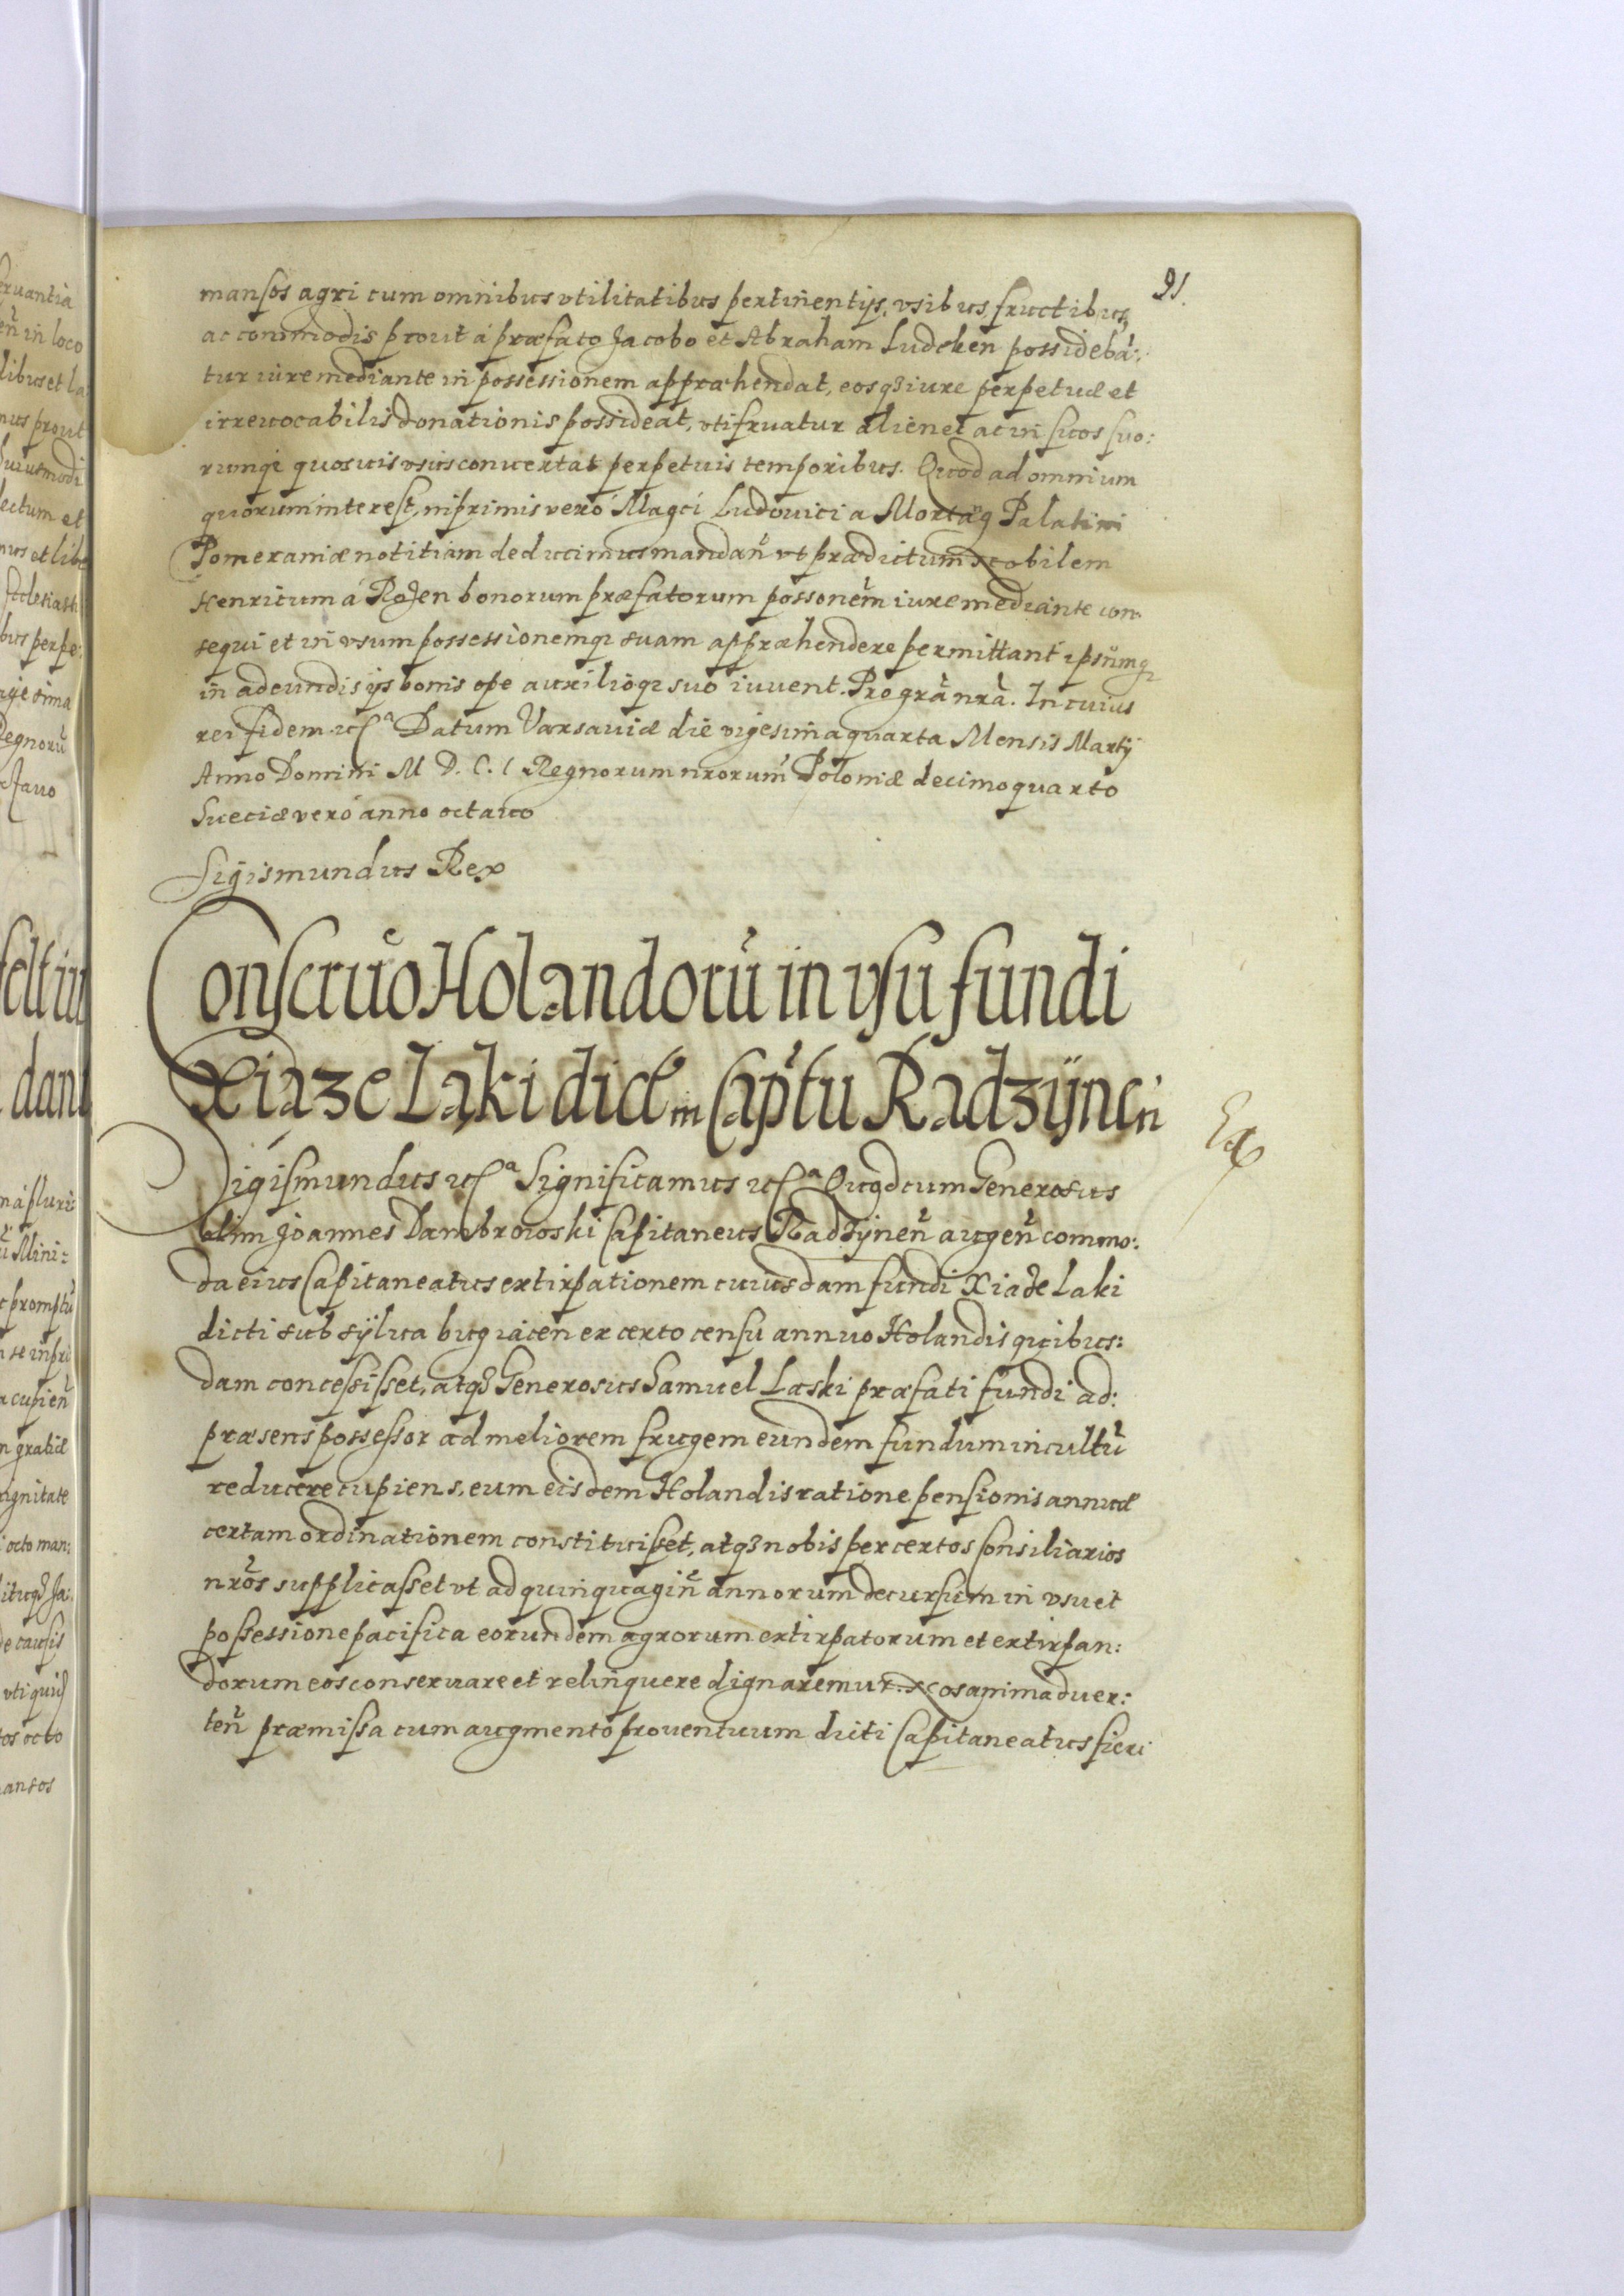 91.
mansos agri cum omnibus vtilitatibus pertinentijs, vsibus, fructibus,
ac commodis prout á præfato Jacobo et Abraham Ludeken possidebã:
tur iure mediante in possessionem appræhendat, eosqȝ iure perpetuæ et
irreuocabilis donationis possideat, vtifruatur alienet ac in suos suo:
rumqȝ quosuis vsus conuertat perpetuis temporibus. Quod ad omnium
quorum interest, inprimis veró Magci Ludouici a Mortæg Palatini
Pomeraniæ notitiam deducimus mandañ vt prædictum Nobilem
Henricum á Rozen bonorum præfatorum possonem̃ iure mediante con:
sequi et in vsum possessionemqȝ suam appræhendere permittant ipsũmqȝ
in adeundis ijs bonis ope auxilioqȝ suo iuuent. Pro grã nrã. In cuius
rei fidem etcᵃ Datum Varsauiæ die vigesima quarta Mensis Martij
Anno Domini M D. C. I Regnorum nrorum̃ Poloniæ decimo quarto
Sueciæ veró anno octauo
Sigismundus Rex
Conseruo Holandorũ in vsu fundi
Xiąze Ląki dict in Cap̃tu Radzÿneñ
Sigismundus etcᵃ Significamus etcᵃ Quod cum Generosus
olim Joannes Dambrowski Capitaneus Radzÿneñ augeñ commo:
da eius Capitaneatus extirpationem cuiusdam fundi Xiąze Laki
dicti sub sÿlua bug iaceñ ex certo censu annuo Holandis quibus:
dam concessisset, atqȝ Generosus Samuel Laski præfati fundi ad:
præsens possessor ad meliorem frugem eundem fundum incultũ
reducere cupiens, eum eisdem Holandis ratione pensionis annuæ
certam ordinationem constituisset, atqȝ nobis per certos Consiliarios
nrõs supplicasset vt ad quinquagiñ annorum decursum in vsu et
possessione pacifica eorundem agrorum extirpatorum et extirpan:
dorum eos conseruare et relinquere dignaremur. Nos animaduer:
teñ præmissa cum augmento prouentuum dicti Capitaneatus fieri